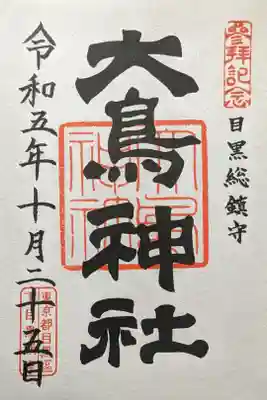 參拝記念
目黒総鎮守
大鳥神社
令和五年十月二十五日
東京都目黒区